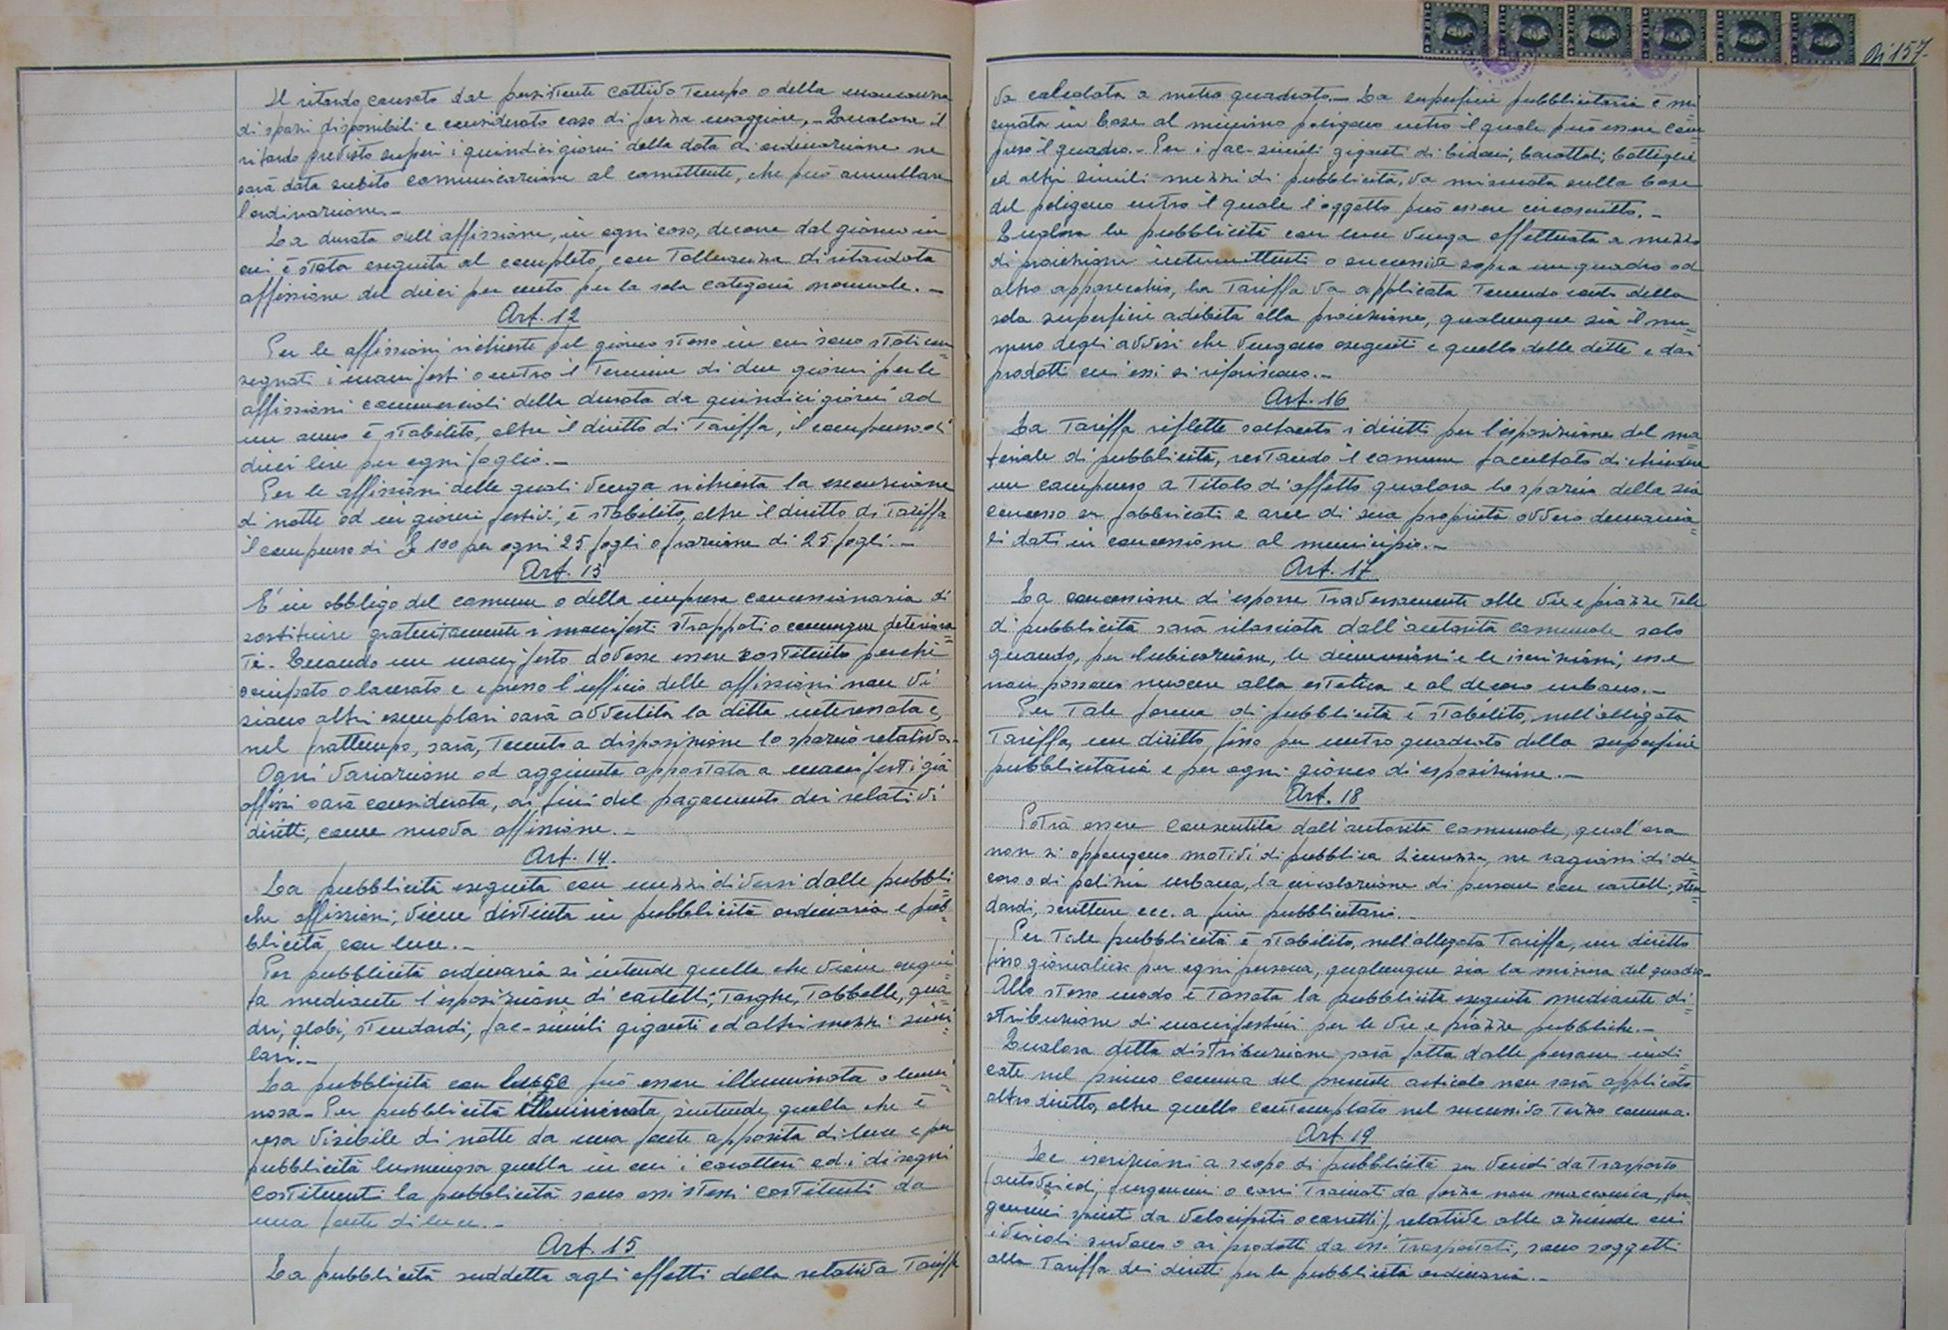 Il ritardo, causato dal persistente cattivo tempo o della mancanza
di spazi disponibili è considerato caso di forza maggiore. - Qualora il
ritardo previsto superi i quindici giorni della data di ordinazione ne
sarà data subito comunicazione al comittente, che può annullare
l'ordinazione. -
La durata dell'affissione, in ogni caso, decorre dal giorno in
cui è stata eseguita al completo, con tolleranza di ritardata
affissione del dieci per cento per la sola categoria normale. -
Art. 12
Per le affissioni richieste pel giorno stesso in cui sono stati con=
segnati i manifesti o entro il termine di due giorni per le
affissioni commerciali della durata da quindici giorni ad
un anno è stabilito, oltre il diritto di tariffa, il compenso di
dieci lire per ogni foglio. -
Per le affissioni delle quali venga richiesta la esecuzione
di notte od in giorni festivi, è stabilito, oltre il diritto di tariffa
il compenso di £ 100 per ogni 25 fogli o frazione di 25 fogli. -
Art. 13
E' in obbligo del comune o della impresa concessionaria di
sostituire gratuitamente i manifesti strappati o comunque deteriora=
ti. - Quando un manifesto dovesse essere sostituito perchè
sciupato o lacerato e presso l'ufficio delle affissioni non vi
siano altri esemplari sarà avvertita la ditta interessata e,
nel frattempo, sarà, tenuto a disposizione lo spazio relativo. -
Ogni variazione od aggiunta apportata a manifesti già
affissi sarà considerata, ai fini del pagamento dei relativi
diritti, come nuova affissione. -
Art. 14.
La pubblicità eseguita con mezzi diversi dalle pubbli=
che affissioni, viene distinta in pubblicità ordinaria e pub=
blicità con luce. -
Per pubblicità ordinaria si intende quella che viene esegui=
ta mediante l'esposizione di cartelli, targhe, tabbelle, qua=
dri, globi, stendardi, fac-simili giganti ed altri mezzi simi=
lari. -
La pubblicità con luce può essere illuminata o lumi=
nosa - Per pubblicità illuminata, s'intende, quella che è
resa visibile di notte da una fonte apposita di luce e per
pubblicità luminosa quella in cui i caratteri ed i disegni
costituenti la pubblicità sono essi stessi costituiti da
una fonte di luce. -
Art. 15
La pubblicità suddetta agli effetti della relativa tariffa
N° 157-
va calcolata a metro quadrato. - La superficie pubblicitaria è mi
surata in base al minimo poligono entro il quale può essere com=
preso il quadro. - Per i fac-simili giganti di bidoni, barattoli, bottiglie
ed altri simili mezzi di pubblicità, va misurata sulla base
del poligono entro il quale l'oggetto può essere circoscritto. -
Qualora la pubblicità con luce venga effettuata a mezzo
di proiezioni intermittenti o successive sopra un quadro od
altro apparecchio, la tariffa va applicata tenendo conto della
sola superficie adibita alla proiezione, qualunque sia il nu=
mero degli avvisi che vengono eseguiti e quello delle ditte e dai
prodotti cui essi si riferiscono. -
Art. 16
La tariffa riflette soltanto i diritti per l'esposizione del ma=
teriale di pubblicità, restando il comune facultato di chiedere
un compenso a titolo d'affitto qualora lo spazio della sia
concesso su fabbricati e aree di sua proprietà ovvero demania
li dati in concessione al municipio. -
Art. 17
La concessione di esporre traversamente alle vie e piazze tele
di pubblicità sarà rilasciata dall'autorità comunale solo
quando, per l'ubicazione, le dimensioni e le iscrizioni, esse
non possano nuocere alla estetica e al decoro urbano. -
Per tale forma di pubblicità è stabilito, nell'alligata
tariffa, un diritto fisso per metro quadrato della superficie
pubblicitaria e per ogni giorno di esposizione. -
Art. 18
Potrà essere consentita dall'autorità comunale, qual'ora
non si oppongano motivi di pubblica sicurezza, ne ragioni di de=
coro o di polizia urbana, la circolazione di persone con cartelli, sten=
dardi, scritture ecc. a fine pubblicitario. -
Per tale pubblicità è stabilito, nell'allegata tariffa, un diritto
fisso giornaliero per ogni persona, qualunque sia la misura del quadro. -
Allo stesso modo è tassata la pubblicità eseguita mediante di=
stribuzione di manifestini per le vie e piazze pubbliche. -
Qualora detta distribuzione sarà fatta dalle persone indi=
cate nel primo comma del presente articolo non sarà applicato
altro diritto, oltre quello contemplato nel successivo terzo comma.
Art. 19
Le iscrizioni a scopo di pubblicità su veicoli da trasporto
(autoveicoli, furgoncini o carri trainati da forza non meccanica, fur
goncini spinti da velocipiti o carretti), relative alle aziende cui
i veicoli servono o ai prodotti da essi trasportati, sono soggetti
alla tariffa dei diritti per la pubblicità ordinaria. -